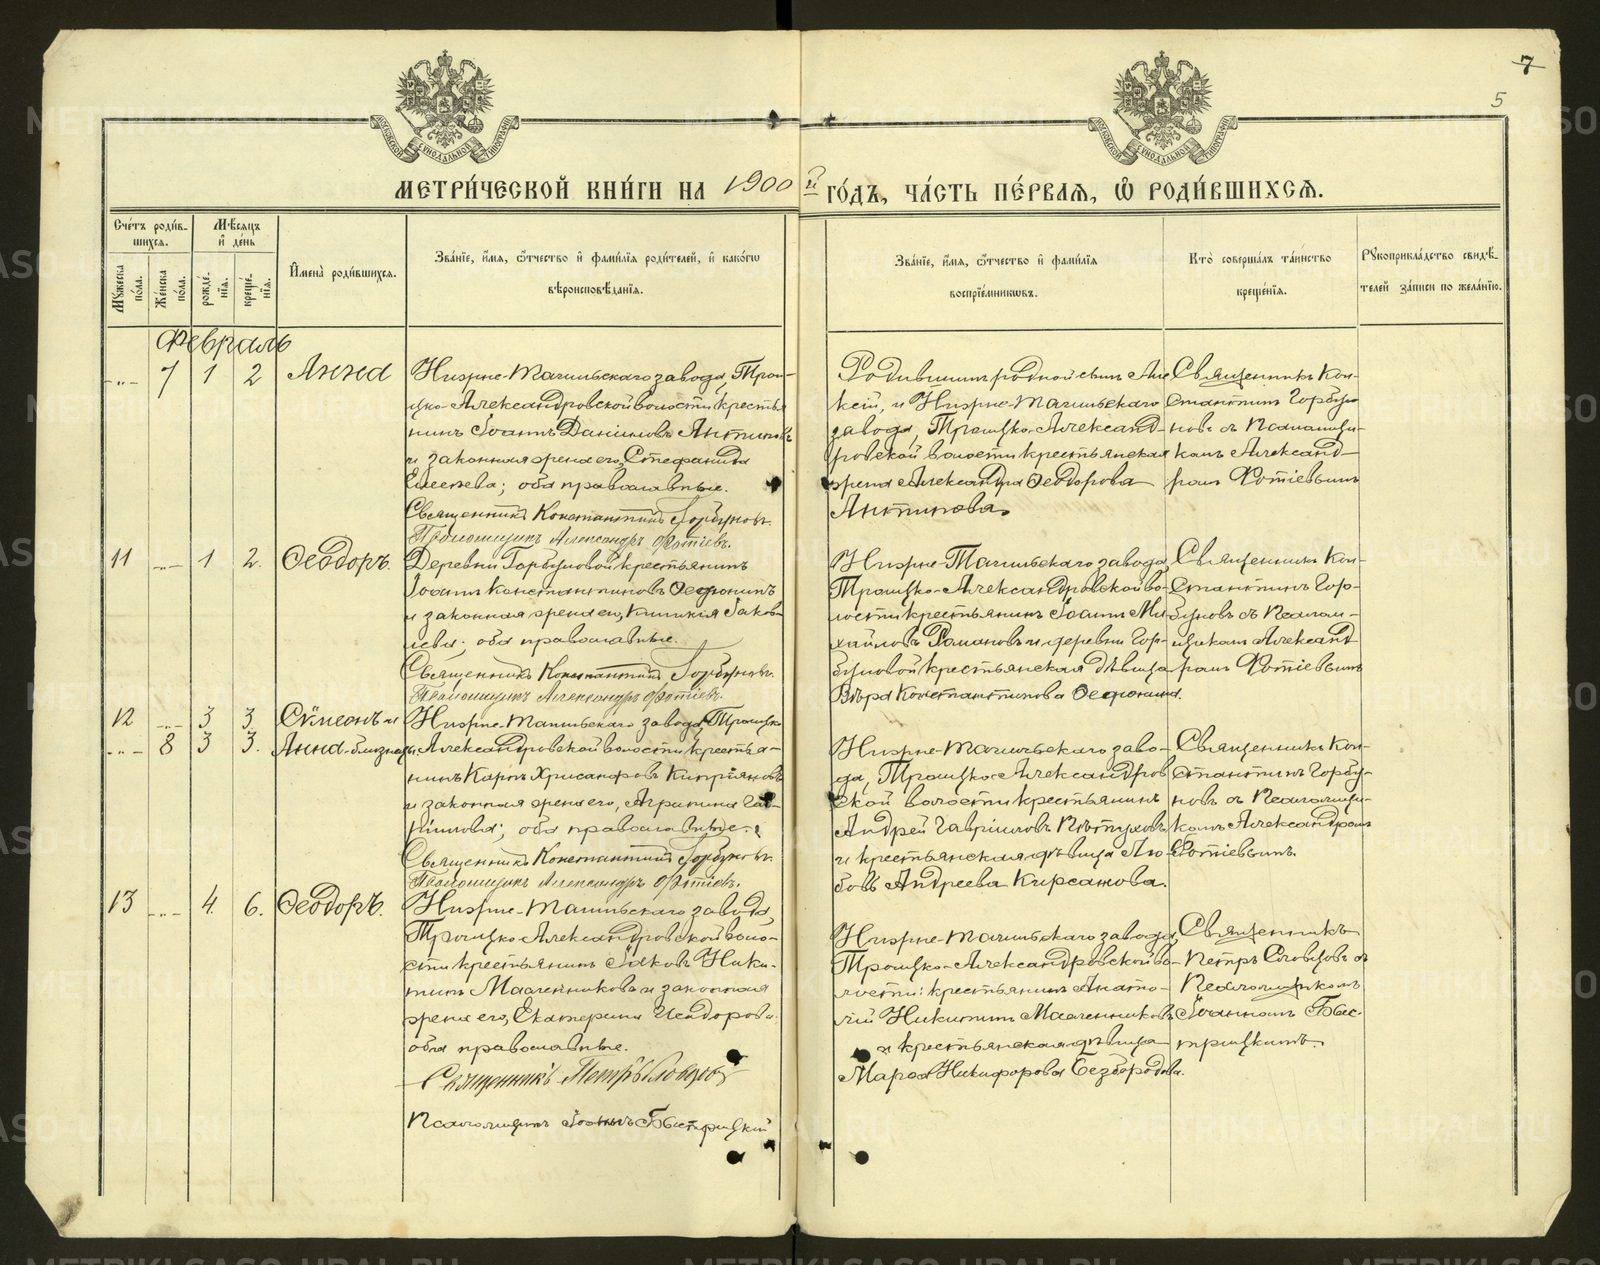 7
5
МОСКОВСКОЙ СѴНОДАЛЬНОЙ ТИПОГРАФІИ
МОСКОВСКОЙ СѴНОДАЛЬНОЙ ТИПОГРАФІИ
МЕТРИ́ЧЕСКОЙ КНИ́ГИ НА 1900 й ГО́ДЪ, ЧА́СТЬ ПЕ́РВАѦ, Ѡ РОДИ́ВШИХСѦ.
Сче́тъ роди́в-
шихсѧ.
Мѣ́сѧцъ
и҆ де́нь
Мꙋ́жеска
по́ла.
Же́нска
по́ла.
рожде́-
нїѧ.
креще́-
нїѧ.
И҆мена̀ роди́вшихсѧ.
Зва́нїе, и҆́мѧ, ѻ҆́тчество и҆ фами́лїѧ роди́телей, и҆ како́гѡ
вѣроисповѣ́данїѧ.
Зва́нїе, и҆́мѧ, ѻ҆́тчество и҆ фами́лїѧ
воспрїе́мникѡвъ.
Кто̀ соверша́лъ та́инство
креще́нїѧ.
Рꙋкоприкла́дство свидѣ́-
телей за́писи по жела́нїю.
Февраль
-"- 7 1 2 Анна
Нижне-Тагильскаго завода, Трои-
цко-Александровской волости крестья
нинъ Іоаннъ Даніиловъ Антиповъ
и законная жена его, Стефанида
Елисеева; оба православные.
Священникъ Константинъ Горбуновъ.
Псаломщикъ Александръ Фотіевъ.
Родившихъ родной сынъ Але
ксій, и Нижне-Тагильскаго
завода, Троицко-Александ-
ровской волости крестьянская
жена Александра Ѳеодорова
Антипова.
Священникъ Кон-
стантинъ Горбу-
новъ съ Псаломщи-
комъ Александ-
ромъ Фотіевымъ
11 -"- 1 2. Ѳеодоръ.
Деревни Горбуновой крестьянинъ
Іоаннъ Константиновъ Ѳефонинъ
и законная жена его, Киликія Іаков-
лева; оба православные.
Священникъ Константинъ Горбуновъ.
Псаломщикъ Александръ Фотіевъ.
Нижне-Тагильскаго завода,
Троицко-Александровской во-
лости крестьянинъ Іоаннъ Ми-
хайловъ Романовъ и деревни Гор-
буновой крестьянская дѣвица
Вѣра Константинова Ѳефонина.
Священникъ Кон-
стантинъ Гор-
буновъ съ Псалом-
щикомъ Александ-
ромъ Фотіевымъ
12 -"- 3 3 Сѵмеонъ и
-"- 8 3 3. Анна-близнецы.
Нижне-Тагильскаго завода, Троицко
Александровской волости крестья-
нинъ Карпъ Хрисанфовъ Кипріяновъ
и законная жена его, Агрипина Гав-
ріилова; оба православные.
Священникъ Константинъ Горбуновъ.
Псаломщикъ Александръ Фотіевъ.
Нижне-Тагильскаго заво-
да, Троицко-Александров-
ской волости крестьянинъ
Андрей Гавріиловъ Пѣтуховъ
и крестьянская дѣвица Лю-
бовь Андреева Кирсанова.
Священникъ Кон-
стантинъ Горбу-
новъ съ Псаломщи-
комъ Александромъ
Фотіевымъ.
13 -"- 4. 6. Ѳеодоръ.
Нижне-Тагильскаго завода,
Троицко-Александровской воло-
сти крестьянинъ Іаковъ Ники-
тинъ Масленниковъ и законная
жена его, Екатерина Исидорова.
оба православные.
Священникъ Петръ Словцовъ
Псаломщикъ Іоаннъ Быстрицкій
Нижне-Тагильскаго завода,
Троицко-Александровской во-
лости: крестьянинъ Анато-
лій Никитинъ Масленниковъ
и крестьянская дѣвица
Марѳа Никифорова Безбородова.
Священникъ
Петръ Словцовъ съ
Псаломщикомъ
Іоанномъ Быс-
трицкимъ.